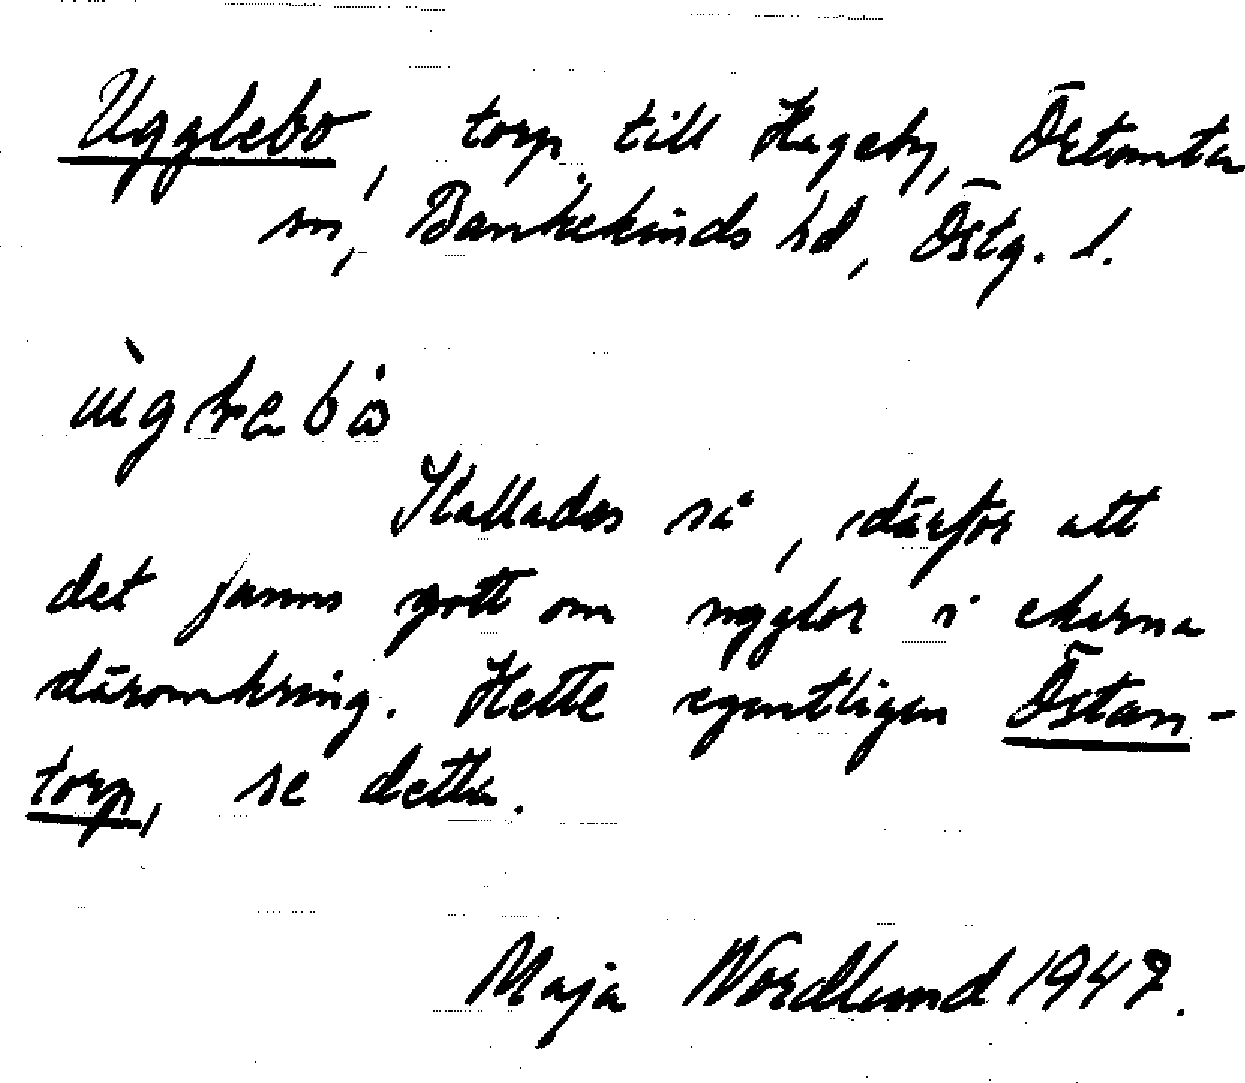 Ugglebo, torp till Hageby, Örtomta
sn, Bankekinds hd, Östg. l.
Kallades så, därför att
det fanns gott om ugglor i ekarna
däromkring. Hette egentligen Östan-
torp, se detta.
Maja Nordlund 1947.